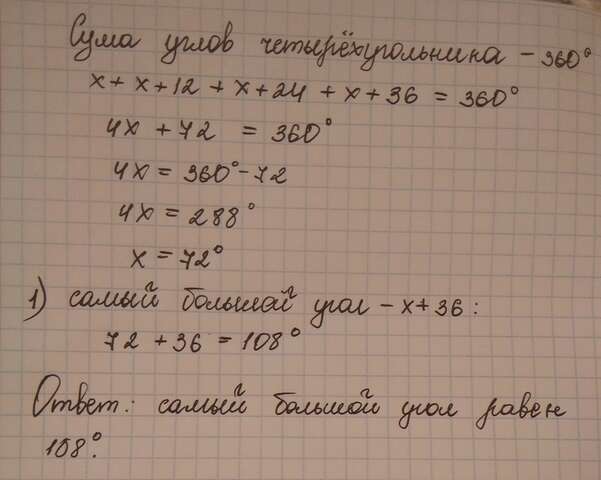 Сума углов четырёхугольника - 360°
x + x + 12 + x + 24 + x + 36 = 360°
4x + 72 = 360°
4x = 360° - 72
4x = 288°
x = 72°
1) самый большой угол - x + 36 :
72 + 36 = 108°
Ответ: самый большой угол равен
108°.